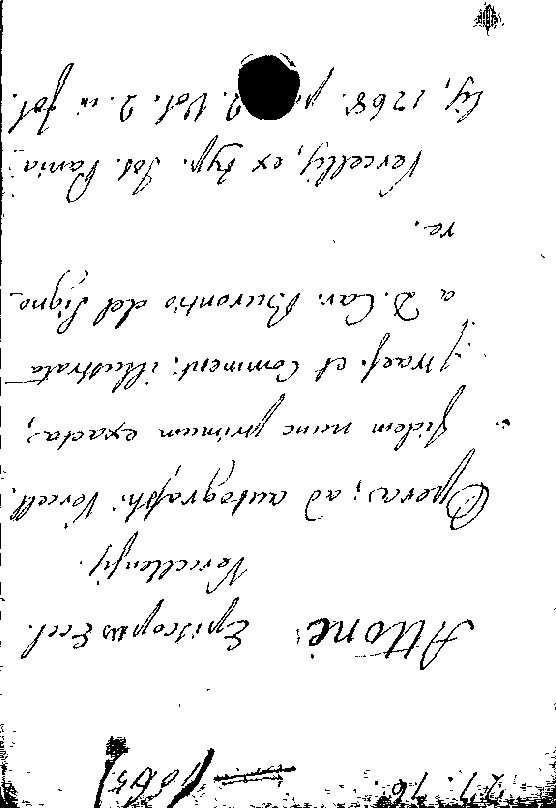 Attone Episcopus Eccl.
Vercellensis.
Opera; ad autographi Vercell.
fidem nunc primum exacta,
praef. et Comment: illustrata
a D. Car. Burontio del Signo-
re.
Vercellis, ex typ. Jos. Pania-
lis, 1768. 2. Vol. 2. in fol.